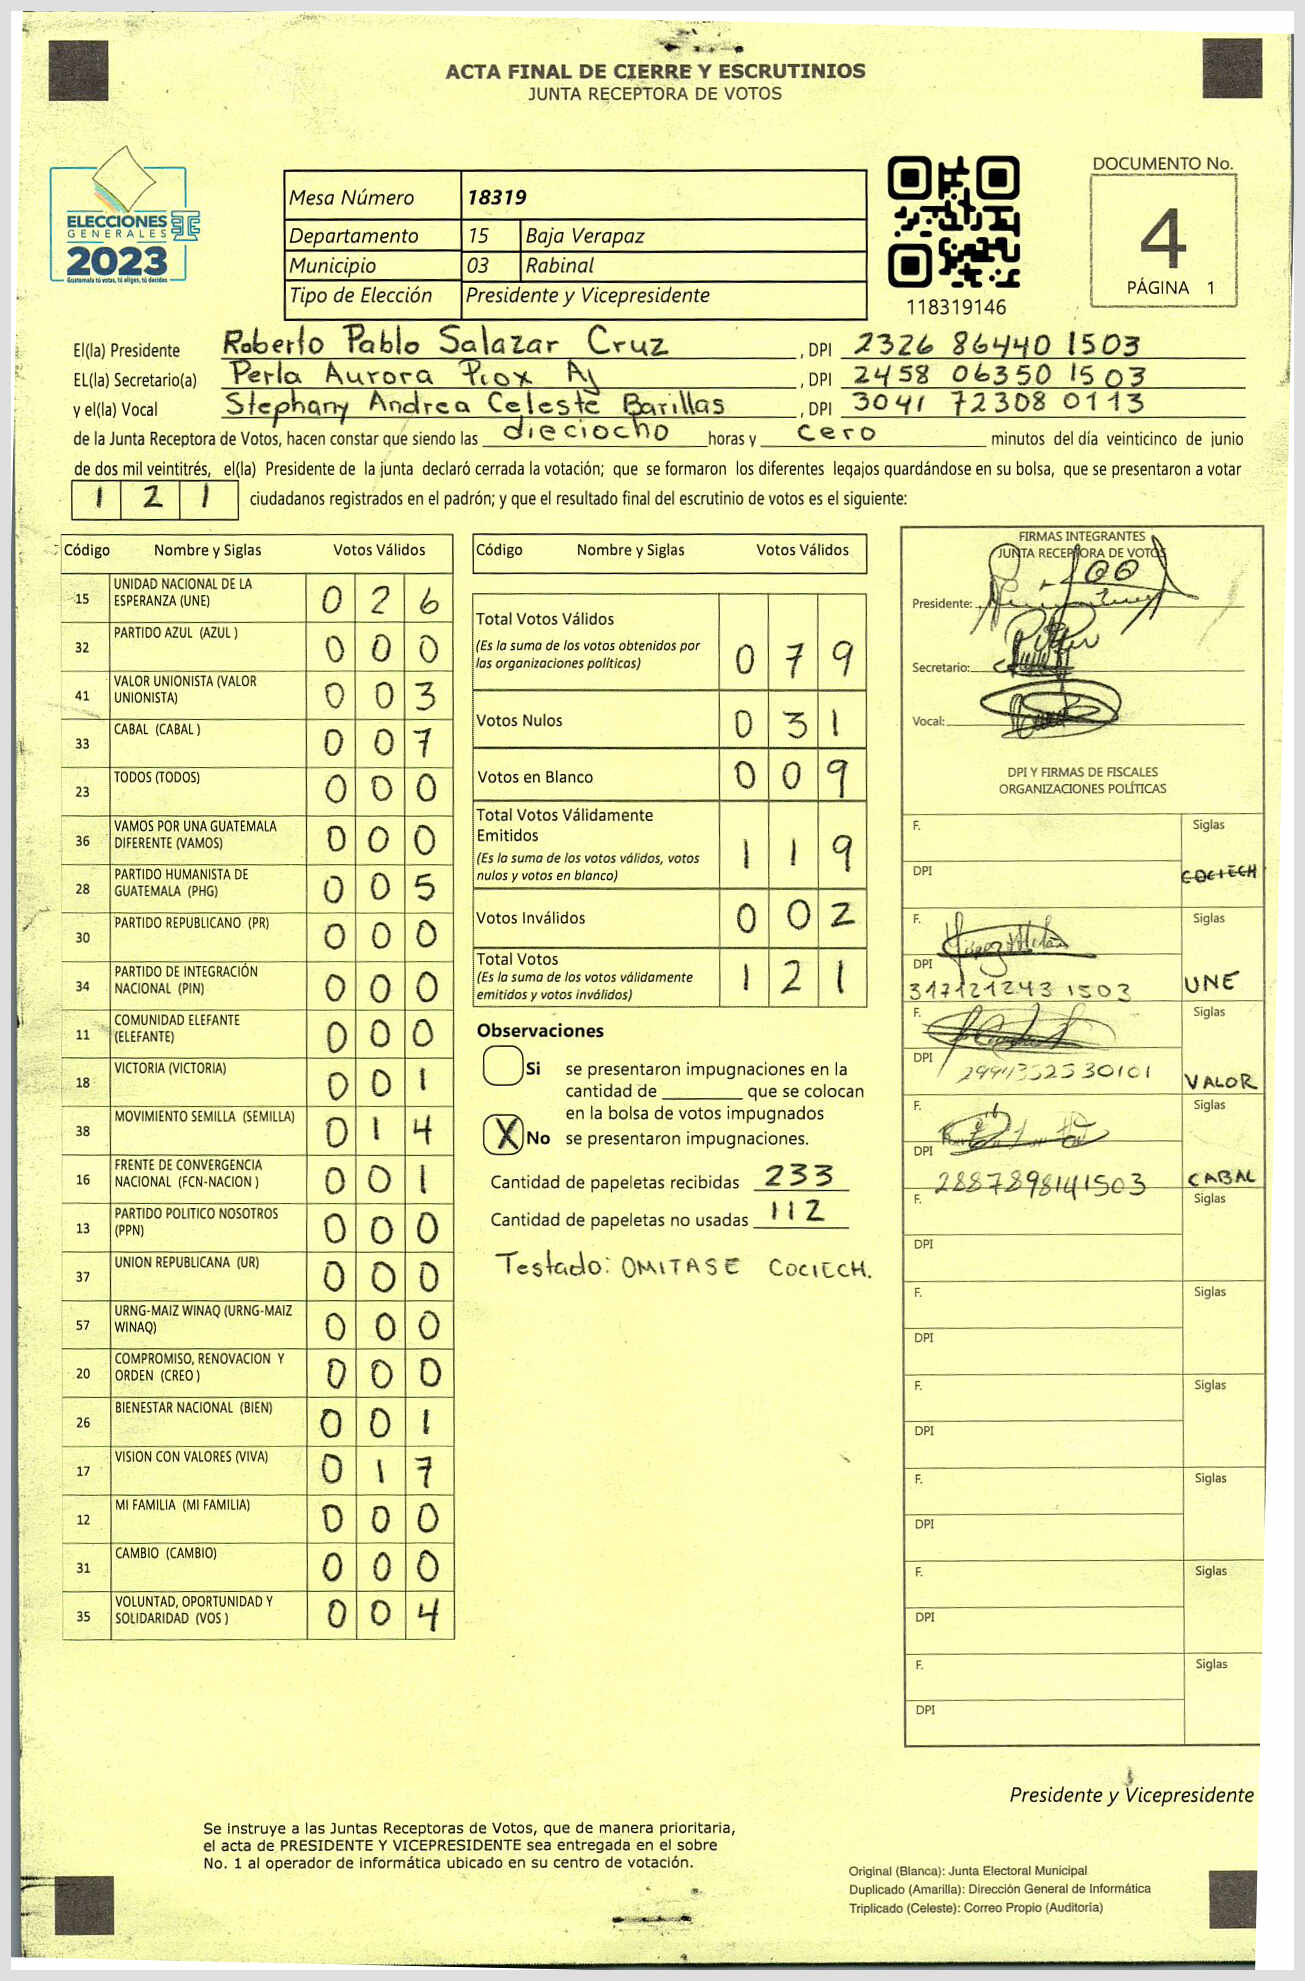 ACTA FINAL DE CIERRE Y ESCRUTINIOS
JUNTA RECEPTORA DE VOTOS
ELECCIONES
GENERALES
2023
Guatemala tú votas, tú eliges, tú decides
Mesa Número 18319
Departamento 15 Baja Verapaz
Municipio 03 Rabinal
Tipo de Elección Presidente y Vicepresidente
118319146
DOCUMENTO No.
4
PÁGINA 1
El(la) Presidente Roberto Pablo Salazar Cruz , DPI 2326 86440 1503
EL(la) Secretario(a) Perla Aurora Piox Aj , DPI 2458 06350 1503
y el(la) Vocal Stephany Andrea Celeste Barillas , DPI 3041 72308 0113
de la Junta Receptora de Votos, hacen constar que siendo las dieciocho horas y cero minutos del día veinticinco de junio
de dos mil veintitrés, el(la) Presidente de la junta declaró cerrada la votación; que se formaron los diferentes legajos quardándose en su bolsa, que se presentaron a votar
1 2 1 ciudadanos registrados en el padrón; y que el resultado final del escrutinio de votos es el siguiente:
Código Nombre y Siglas Votos Válidos
15 UNIDAD NACIONAL DE LA
ESPERANZA (UNE) 0 2 6
32 PARTIDO AZUL (AZUL ) 0 0 0
41 VALOR UNIONISTA (VALOR
UNIONISTA) 0 0 3
33 CABAL (CABAL ) 0 0 7
23 TODOS (TODOS) 0 0 0
36 VAMOS POR UNA GUATEMALA
DIFERENTE (VAMOS) 0 0 0
28 PARTIDO HUMANISTA DE
GUATEMALA (PHG) 0 0 5
30 PARTIDO REPUBLICANO (PR) 0 0 0
34 PARTIDO DE INTEGRACIÓN
NACIONAL (PIN) 0 0 0
11 COMUNIDAD ELEFANTE
(ELEFANTE) 0 0 0
18 VICTORIA (VICTORIA) 0 0 1
38 MOVIMIENTO SEMILLA (SEMILLA) 0 1 4
16 FRENTE DE CONVERGENCIA
NACIONAL (FCN-NACION ) 0 0 1
13 PARTIDO POLITICO NOSOTROS
(PPN) 0 0 0
37 UNION REPUBLICANA (UR) 0 0 0
57 URNG-MAIZ WINAQ (URNG-MAIZ
WINAQ) 0 0 0
20 COMPROMISO, RENOVACION Y
ORDEN (CREO ) 0 0 0
26 BIENESTAR NACIONAL (BIEN) 0 0 1
17 VISION CON VALORES (VIVA) 0 1 7
12 MI FAMILIA (MI FAMILIA) 0 0 0
31 CAMBIO (CAMBIO) 0 0 0
35 VOLUNTAD, OPORTUNIDAD Y
SOLIDARIDAD (VOS ) 0 0 4
Código Nombre y Siglas Votos Válidos
Total Votos Válidos
(Es la suma de los votos obtenidos por
las organizaciones políticas) 0 7 9
Votos Nulos 0 3 1
Votos en Blanco 0 0 9
Total Votos Válidamente
Emitidos
(Es la suma de los votos válidos, votos
nulos y votos en blanco) 1 1 9
Votos Inválidos 0 0 2
Total Votos
(Es la suma de los votos válidamente
emitidos y votos inválidos) 1 2 1
Observaciones
Si se presentaron impugnaciones en la
cantidad de ________ que se colocan
en la bolsa de votos impugnados
X No se presentaron impugnaciones.
Cantidad de papeletas recibidas 233
Cantidad de papeletas no usadas 112
Testado: OMITASE COCIECH.
FIRMAS INTEGRANTES
JUNTA RECEPTORA DE VOTOS
Presidente:
Secretario:
Vocal:
DPI Y FIRMAS DE FISCALES
ORGANIZACIONES POLÍTICAS
F. Siglas
DPI COCIECH
F. Siglas
DPI
317121243 1503 UNE
F. Siglas
DPI
2994352530101 VALOR
F. Siglas
DPI
2887898141503 CABAL
F. Siglas
DPI
F. Siglas
DPI
F. Siglas
DPI
F. Siglas
DPI
F. Siglas
DPI
F. Siglas
DPI
Presidente y Vicepresidente
Se instruye a las Juntas Receptoras de Votos, que de manera prioritaria,
el acta de PRESIDENTE Y VICEPRESIDENTE sea entregada en el sobre
No. 1 al operador de informática ubicado en su centro de votación.
Original (Blanca): Junta Electoral Municipal
Duplicado (Amarilla): Dirección General de Informática
Triplicado (Celeste): Correo Propio (Auditoría)